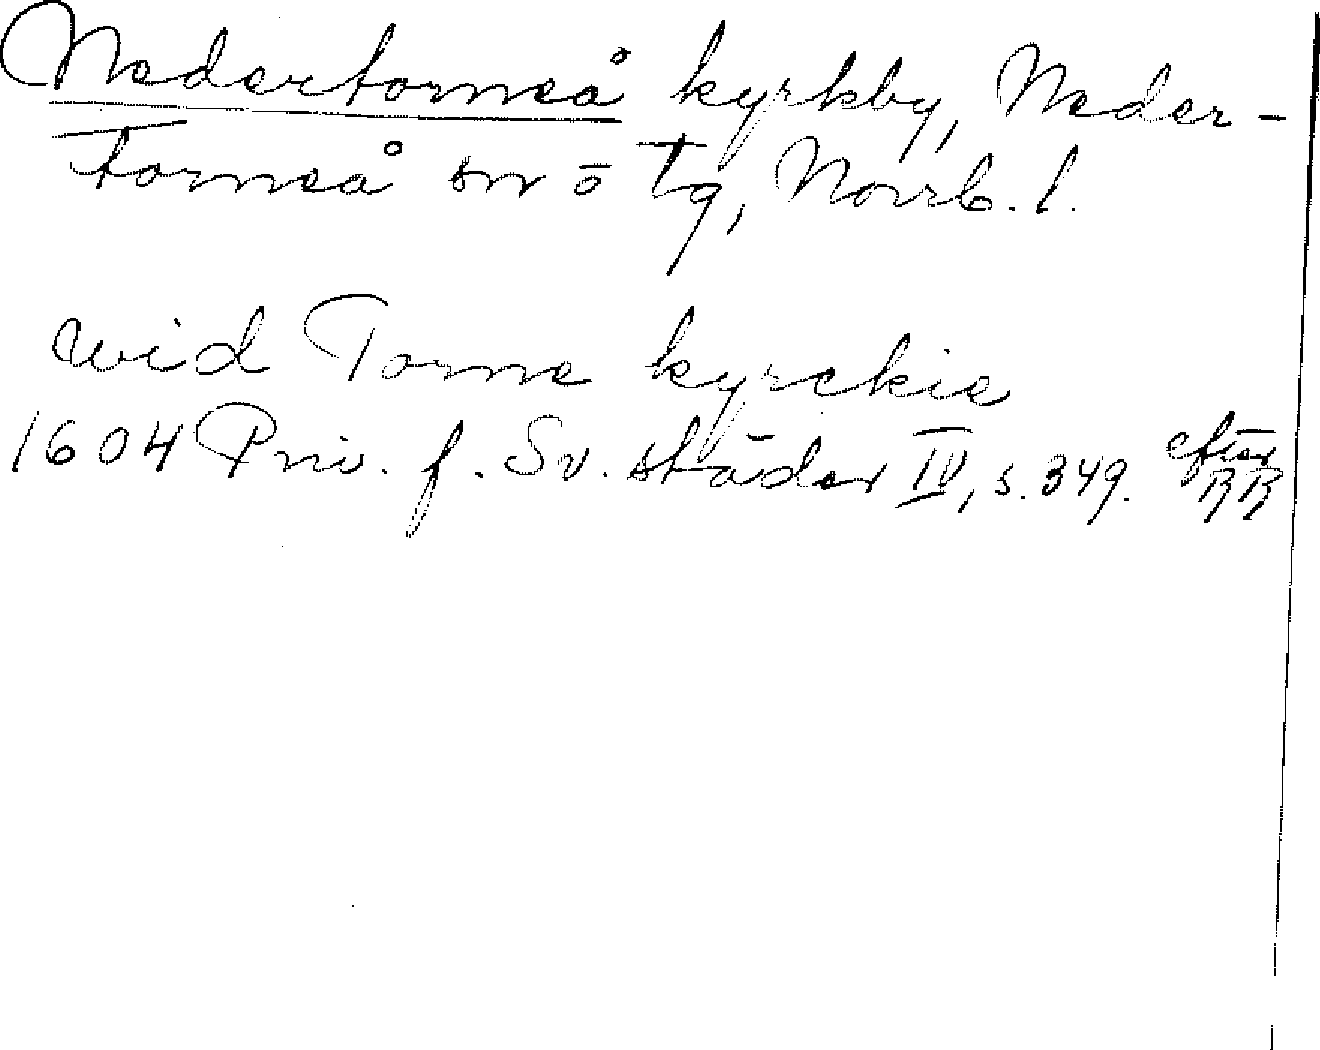 Nedertorneå kyrkby, Neder-
torneå sn o tg, Norrb. l.
wid Torne kyrckie
1604 Priv. f. Sv. städer IV, s. 349. efter
RR